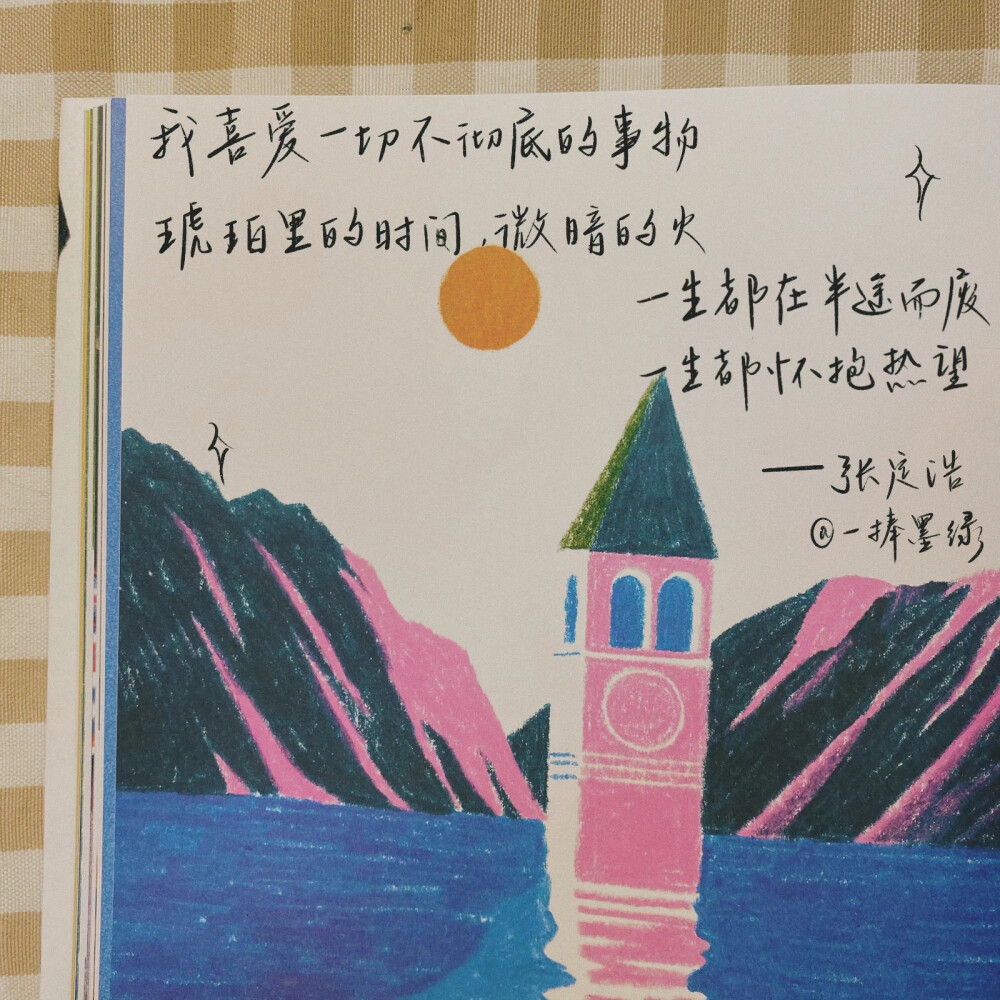 我喜爱一切不彻底的事物
琥珀里的时间，微暗的火
一生都在半途而废
一生都怀抱热望
——张定浩
@一捧墨绿